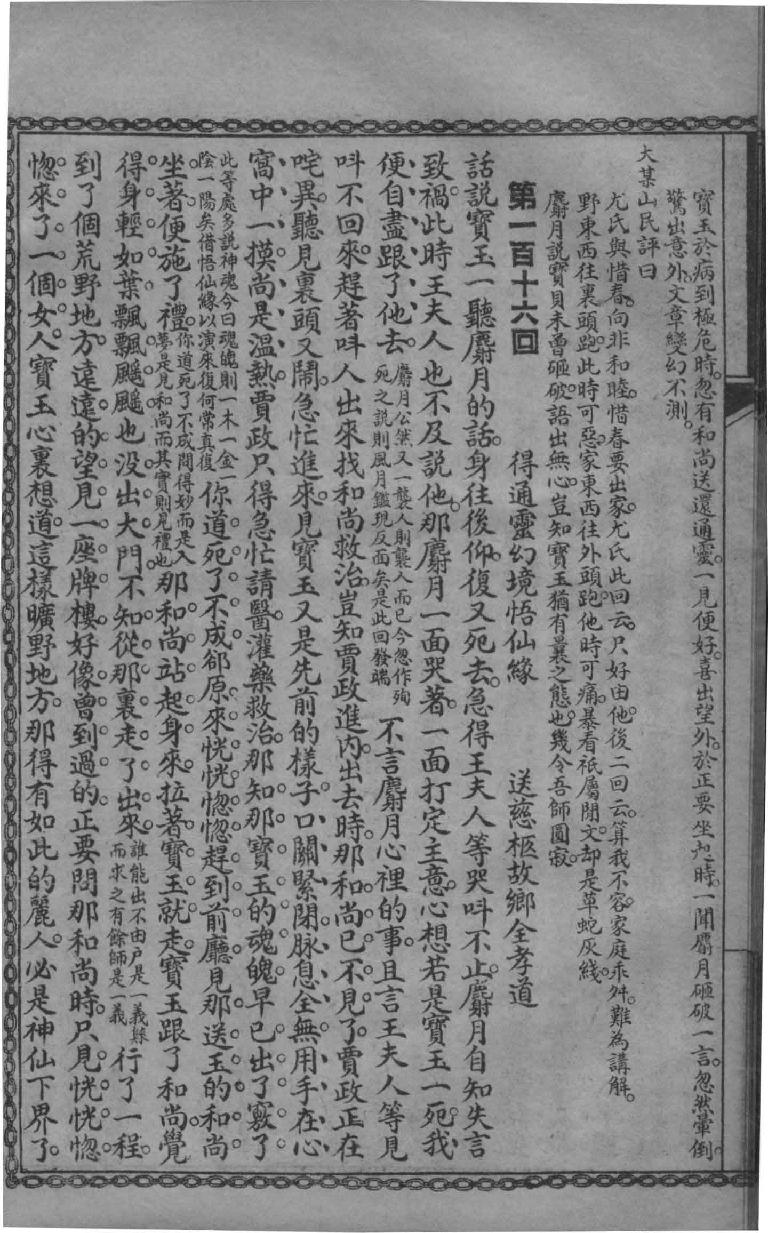 寶玉於病到極危時。忽有和尚送還通靈。一見便好。喜出望外。於正要坐起時。一聞麝月砸破一言。忽然暈倒。
驚出意外。文章變幻不測。
大某山民評曰
尤氏與惜春。向非和睦。惜春要出家。尤氏此回云。只好由他。後二回云。算我不容。家庭乖舛。難為講解。
野東西往裏頭跑。此時可惡。家東西往外頭跑。他時可痛。暴看祇屬閒文。却是草蛇灰綫。
麝月說寶貝未曾砸破。語出無心。豈知寶玉猶有曩之態也。幾令吾師圓寂。
第一百十六回　得通靈幻境悟仙緣　送慈柩故鄉全孝道
話說寶玉一聽麝月的話。身往後仰。復又死去。急得王夫人等哭呌不止。麝月自知失言
致禍。此時王夫人也不及說他。那麝月一面哭著。一面打定主意。心想若是寶玉一死。我
便自盡跟了他去。麝月公然又一襲人則襲人而已今忽作殉
死之說則風月鑑現反面矣是此回發端不言麝月心裡的事。且言王夫人等見
呌不回來。趕著呌人出來找和尚救治。豈知賈政進內出去時。那和尚已不見了。賈政正在
咤異。聽見裏頭又鬧。急忙進來。見寶玉又是先前的樣子。口關緊閉。脉息全無。用手在心
窩中一摸。尚是温熱。賈政只得急忙請醫灌藥救治。那知那寶玉的魂魄早已出了竅了。
此等處多說神魂今曰魂魄則一木一金一
陰一陽矣借悟仙緣以演來復何常真復你道死了不成。郤原來恍恍惚惚趕到前廳。見那送玉的和尚
坐著。便施了禮。你道死了不成問得妙而是入
夢是見和尚而其實則見禮也那和尚站起身來。拉著寶玉就走。寶玉跟了和尚。覺
得身輕如葉。飄飄颻颻。也没出大門。不知從那裏走了出來。誰能出不由戶是一義縣
而求之有餘師是一義行了一程。
到了個荒野地方。遠遠的望見一座牌樓。好像曾到過的。正要問那和尚時。只見恍恍惚
惚來了一個女人。寶玉心裏想道。這樣曠野地方。那得有如此的麗人。必是神仙下界了。